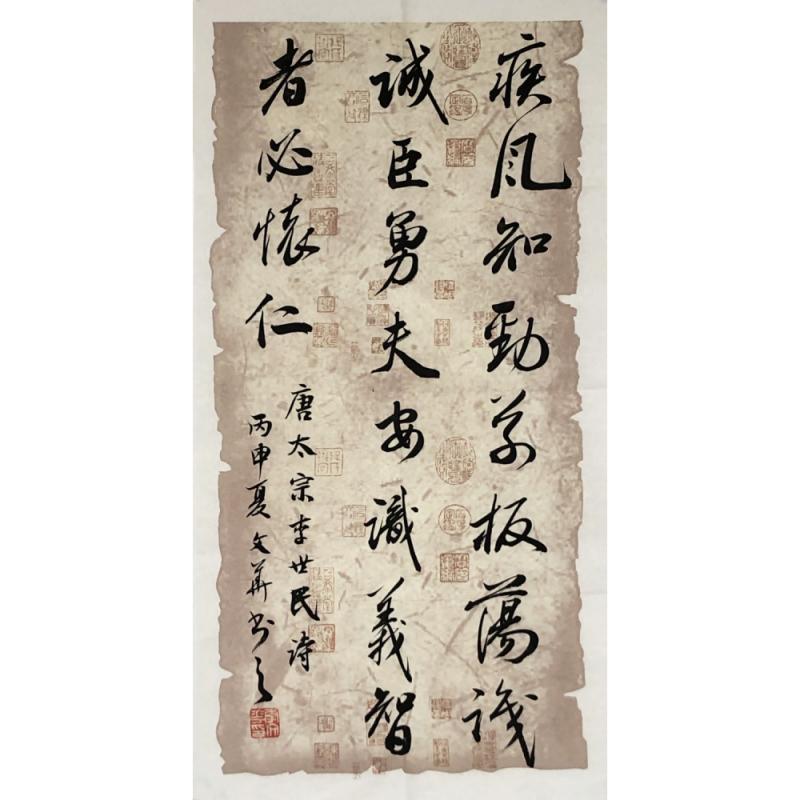 疾风知勁草板蕩識
誠臣勇夫安識義智
者必懷仁
唐太宗李世民诗
丙申夏文華书之